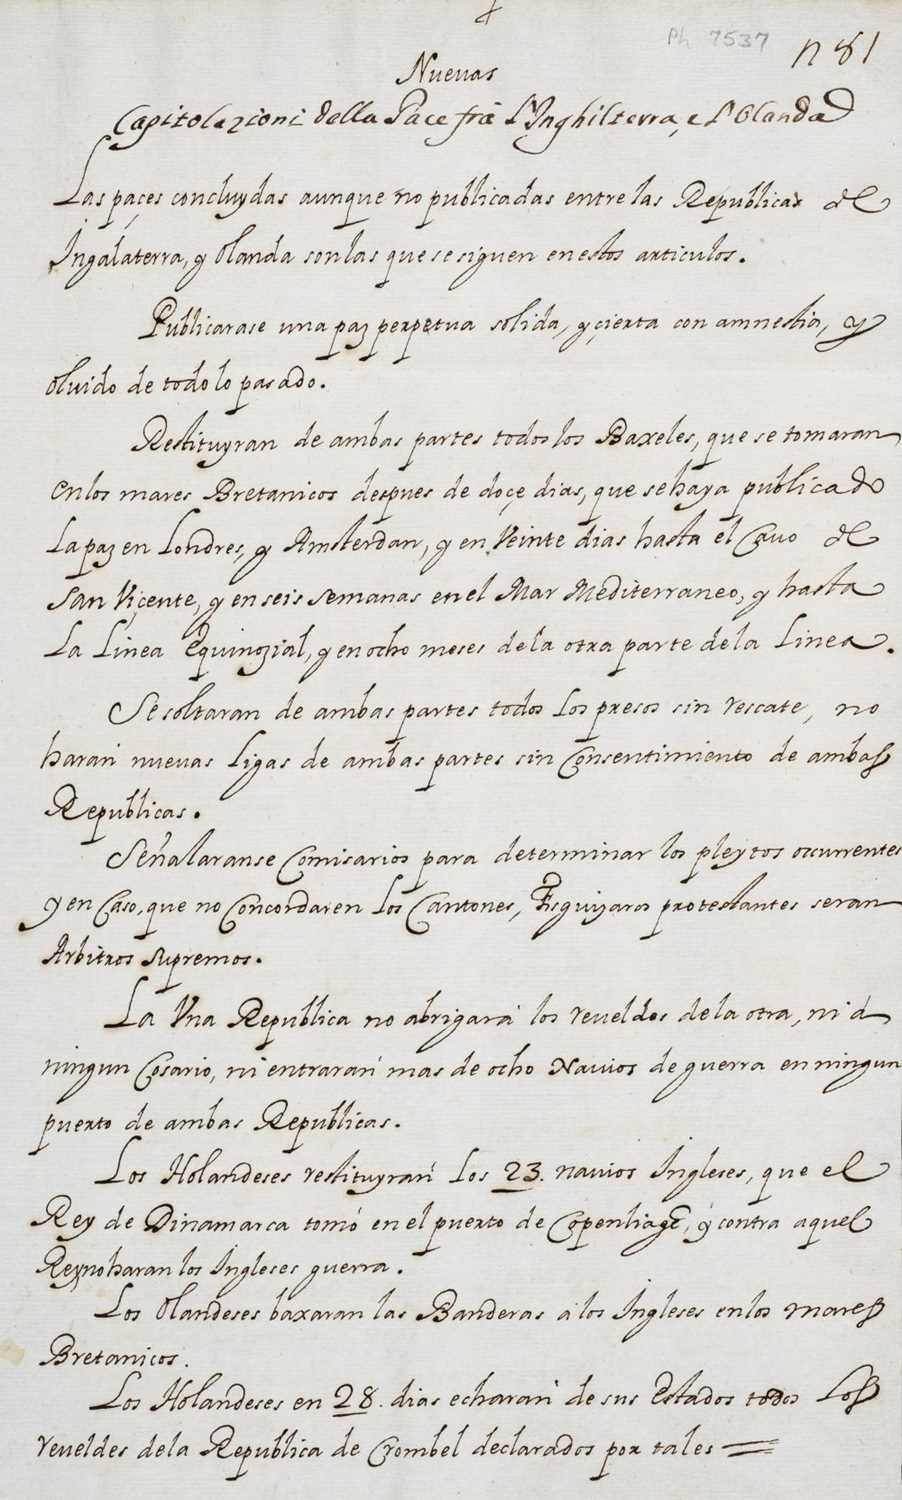 Ph 7537
n 81
Nuevas
Capitolazioni della Pace frà l'Inghilterra, e l'Olanda
Las paçes concluydas aunque no publicadas entre las Republicas de
Ingalaterra, y Olanda son las que se siguen en estos articulos.
Publicarase una paz perpetua solida, y çierta con amnestia, y
olvido de todo lo pasado.
Restituyran de ambas partes todos los Baxeles, que se tomaran
en los mares Bretanicos despues de doçe dias, que se haya publicado
la paz en Londres, y Amsterdan, y en Veinte dias hasta el Cavo de
San Viçente, y en seis semanas en el Mar Mediterraneo, y hasta
La Linea Equinozial, y en ocho meses de la otra parte de la Linea.
Se soltaran de ambas partes todos los presos sin rescate, no
haran nuevas Ligas de ambas partes sin Consentimiento de ambas
Republicas.
Señalaranse Comisarios para determinar los pleytos occurrentes
y en Caso, que no Concordaren los Cantones, Esguizaros protestantes seran
Arbitros supremos.
La Una Republica no abrigará los reveldes de la otra, ni à
ningun Cosario, ni entrarán mas de ocho Navios de guerra en ningun
puerto de ambas Republicas.
Los Holandeses restituyrán los 23. navios Ingleses, que el
Rey de Dinamarca tomó en el puerto de Copenhage, y contra aquel
Reyno haran los Ingleses guerra.
Los Olandeses baxaran las Banderas à los Ingleses en los mares
Bretanicos.
Los Holandeses en 28. dias echarán de sus Estados todos los
reveldes de la Republica de Crombel declarados por tales